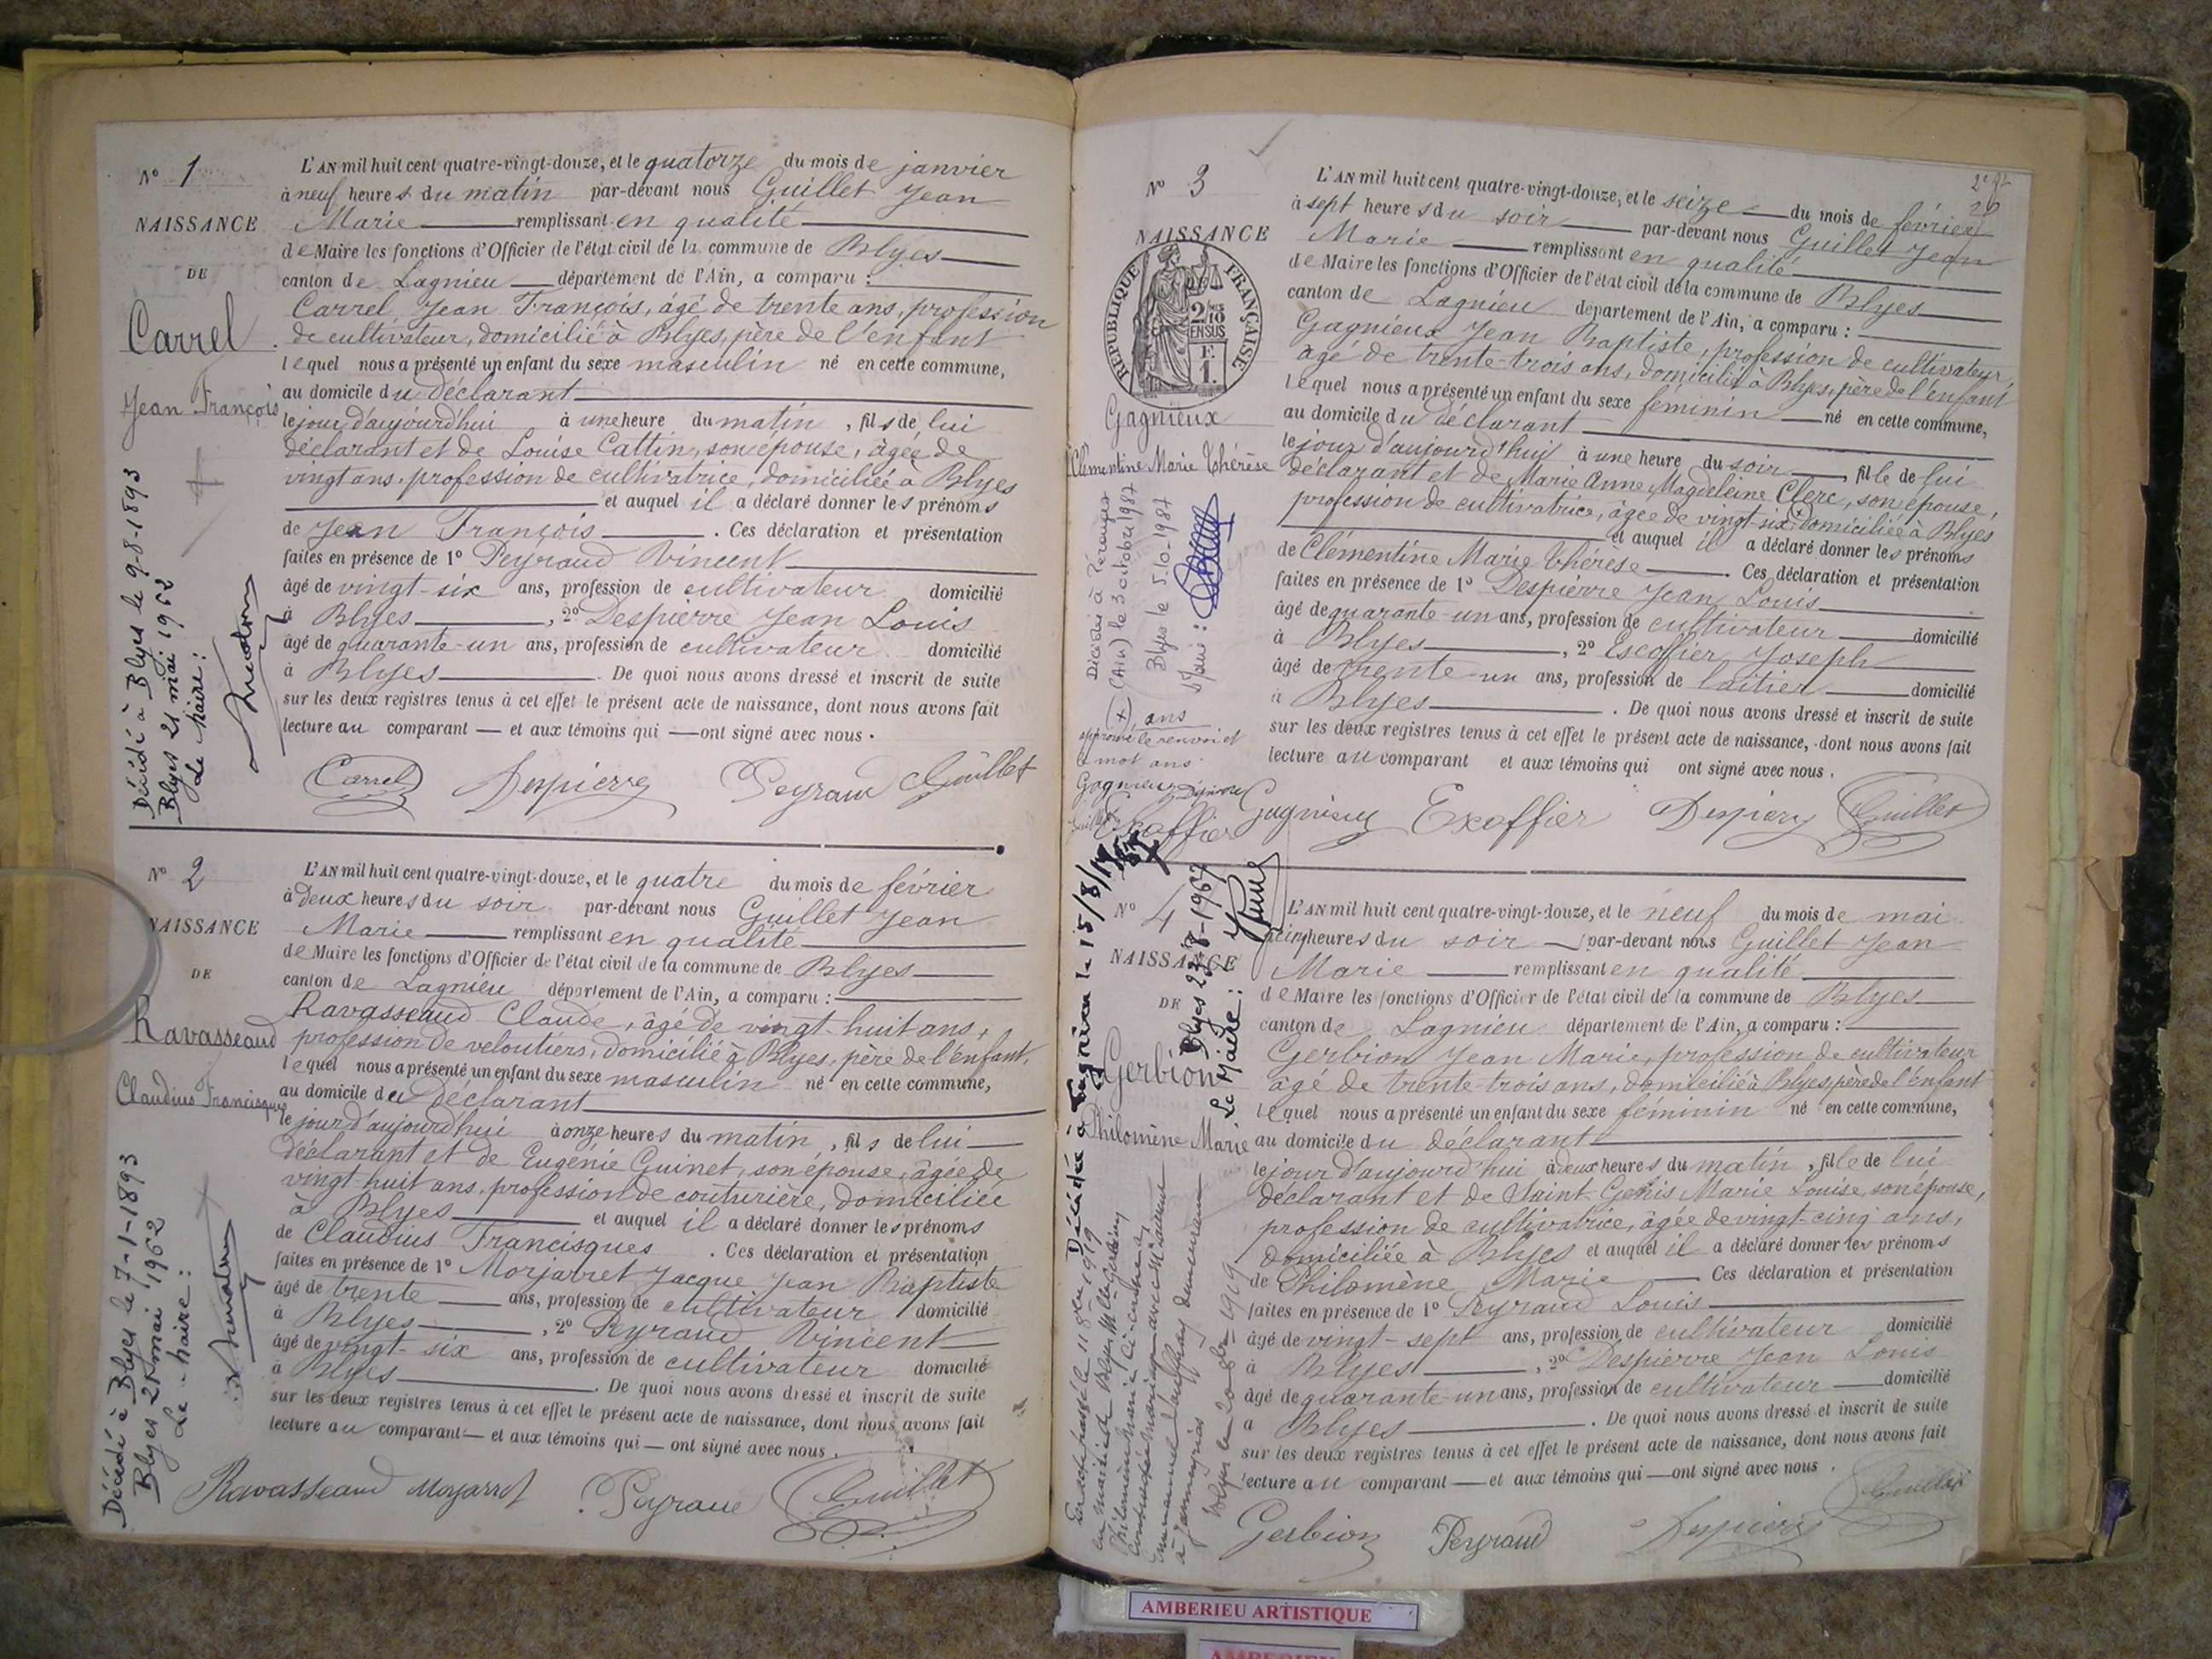 N° 1
NAISSANCE
DE
Carrel
Jean François
Décédé à Blyes le 9-8-1893
Blyes 21 mai 1962
Le Maire :
L'AN mil huit cent quatre-vingt-douze, et le quatorze du mois de janvier
à neuf heures du matin par-devant nous Guillet Jean
Marie remplissant en qualité
de Maire les fonctions d'Officier de l'état civil de la commune de Blyes
canton de Lagnieu département de l'Ain, a comparu :
Carrel Jean François, âgé de trente ans, profession
de cultivateur, domicilié à Blyes, père de l'enfant
lequel nous a présenté un enfant du sexe masculin né en cette commune,
au domicile du déclarant
le jour d'aujourd'hui à une heure du matin, fils de lui
déclarant et de Louise Cattin, son épouse, âgée de
vingt ans, profession de cultivatrice, domiciliée à Blyes
et auquel il a déclaré donner les prénoms
de Jean François . Ces déclaration et présentation
faites en présence de 1° Peyraud Vincent
âgé de vingt-six ans, profession de cultivateur domicilié
à Blyes, 2° Despierre Jean Louis
âgé de quarante-un ans, profession de cultivateur domicilié
à Blyes . De quoi nous avons dressé et inscrit de suite
sur les deux registres tenus à cet effet le présent acte de naissance, dont nous avons fait
lecture au comparant — et aux témoins qui — ont signé avec nous.
Carrel Despierre Peyraud Guillet
N° 2
NAISSANCE
DE
Ravasseaud
Claudius Francisques
Décédé à Blyes le 7-1-1893
Blyes 21 mai 1962
Le Maire :
L'AN mil huit cent quatre-vingt-douze, et le quatre du mois de février
à deux heures du soir par-devant nous Guillet Jean
Marie remplissant en qualité
de Maire les fonctions d'Officier de l'état civil de la commune de Blyes
canton de Lagnieu département de l'Ain, a comparu :
Ravasseaud Claude, âgé de vingt-huit ans,
profession de veloutiers, domicilié à Blyes, père de l'enfant,
lequel nous a présenté un enfant du sexe masculin né en cette commune,
au domicile du déclarant
le jour d'aujourd'hui à onze heures du matin, fils de lui
déclarant et de Eugénie Guinet, son épouse, âgée de
vingt huit ans, profession de couturière, domiciliée
à Blyes et auquel il a déclaré donner les prénoms
de Claudius Francisques . Ces déclaration et présentation
faites en présence de 1° Morjarret Jacque Jean Baptiste
âgé de trente ans, profession de cultivateur domicilié
à Blyes, 2° Peyraud Vincent
âgé de vingt-six ans, profession de cultivateur domicilié
à Blyes . De quoi nous avons dressé et inscrit de suite
sur les deux registres tenus à cet effet le présent acte de naissance, dont nous avons fait
lecture au comparant — et aux témoins qui — ont signé avec nous.
Ravasseaud Morjarret Peyraud Guillet
N° 3
NAISSANCE
REPUBLIQUE FRANÇAISE
2/10 EN SUS
F. 1.
Gagnieux
Clémentine Marie Thérèse
Décédée à Pérouges
(Ain) le 3 octobre 1987
Blyes le 5.10.1987
(+) ans
approuvé le renvoi et
le mot ans
Gagnieux Despierre
Guillet Excoffier
L'AN mil huit cent quatre-vingt-douze, et le seize du mois de février
à sept heures du soir par-devant nous Guillet Jean
Marie remplissant en qualité
de Maire les fonctions d'Officier de l'état civil de la commune de Blyes
canton de Lagnieu département de l'Ain, a comparu :
Gagnieux Jean Baptiste, profession de cultivateur,
âgé de trente-trois ans, domicilié à Blyes, père de l'enfant
lequel nous a présenté un enfant du sexe féminin né en cette commune,
au domicile du déclarant
le jour d'aujourd'hui à une heure du soir, fille de lui
déclarant et de Marie Anne Magdeleine Clerc, son épouse,
profession de cultivatrice, âgée de vingt-six + domiciliée à Blyes
et auquel il a déclaré donner les prénoms
de Clémentine Marie Thérèse . Ces déclaration et présentation
faites en présence de 1° Despierre Jean Louis
âgé de quarante-un ans, profession de cultivateur domicilié
à Blyes, 2° Escoffier Joseph
âgé de trente-un ans, profession de laitier domicilié
à Blyes . De quoi nous avons dressé et inscrit de suite
sur les deux registres tenus à cet effet le présent acte de naissance, dont nous avons fait
lecture au comparant et aux témoins qui ont signé avec nous.
Gagnieux Excoffier Despierre Guillet
N° 4
NAISSANCE
DE
Gerbion
Philomène Marie
Blyes 23-8-1967
Le Maire :
L'AN mil huit cent quatre-vingt-douze, et le neuf du mois de mai
à cinq heures du soir par-devant nous Guillet Jean
Marie remplissant en qualité
de Maire les fonctions d'Officier de l'état civil de la commune de Blyes
canton de Lagnieu département de l'Ain, a comparu :
Gerbion Jean Marie, profession de cultivateur
âgé de trente-trois ans, domicilié à Blyes, père de l'enfant
lequel nous a présenté un enfant du sexe féminin né en cette commune,
au domicile du déclarant
le jour d'aujourd'hui à deux heures du matin, fille de lui
déclarant et de Saint-Genis Marie Louise, son épouse,
profession de cultivatrice, âgée de vingt-cinq ans,
domiciliée à Blyes et auquel il a déclaré donner les prénoms
de Philomène Marie Ces déclaration et présentation
faites en présence de 1° Peyraud Louis
âgé de vingt-sept ans, profession de cultivateur domicilié
à Blyes, 2° Despierre Jean Louis
âgé de quarante-un ans, profession de cultivateur domicilié
à Blyes . De quoi nous avons dressé et inscrit de suite
sur les deux registres tenus à cet effet le présent acte de naissance, dont nous avons fait
lecture au comparant — et aux témoins qui — ont signé avec nous.
Guillet
Gerbion Peyraud Despierre
AMBERIEU ARTISTIQUE
AMBERIEU